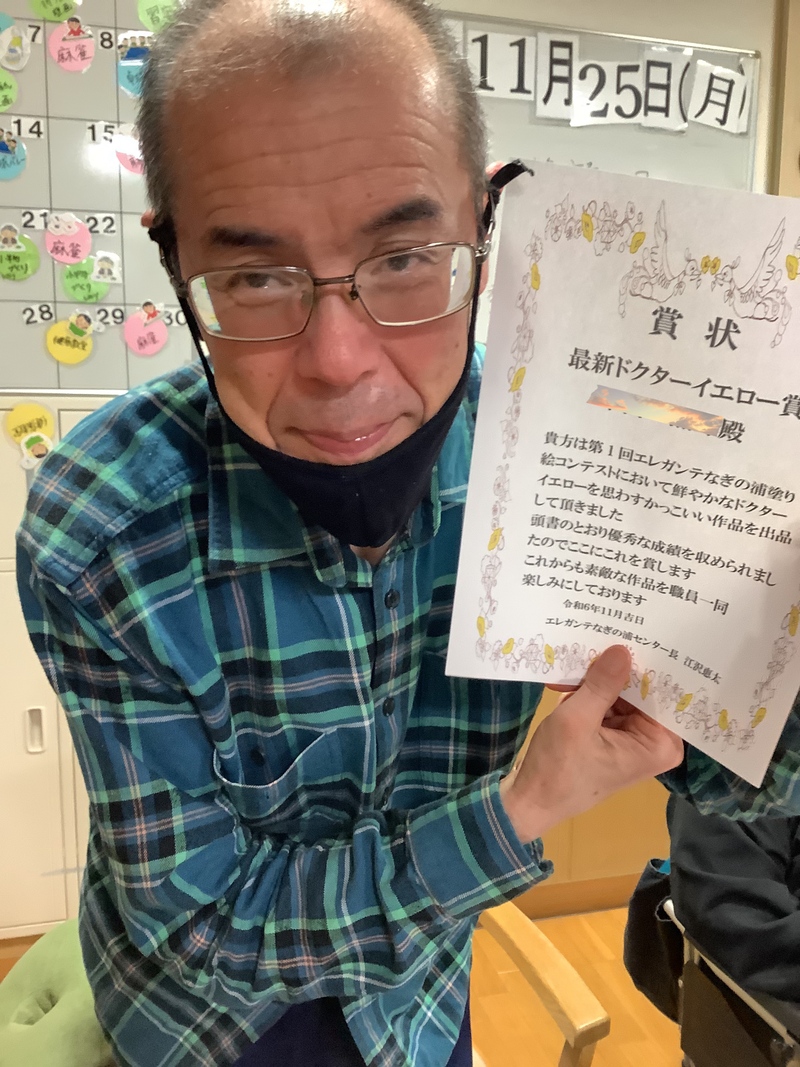 7
麻雀
8
14
15
21
麻雀
22
28
29
麻雀
30
11月25日(月)
賞状
最新ドクターイエロー賞
殿
貴方は第1回エレガンテなぎの浦塗り
絵コンテストにおいて鮮やかなドクター
イエローを思わすかっこいい作品を出品
して頂きました
頭書のとおり優秀な成績を収められまし
たのでここにこれを賞します
これからも素敵な作品を職員一同
楽しみにしております
令和6年11月吉日
エレガンテなぎの浦センター長 江沢恵太